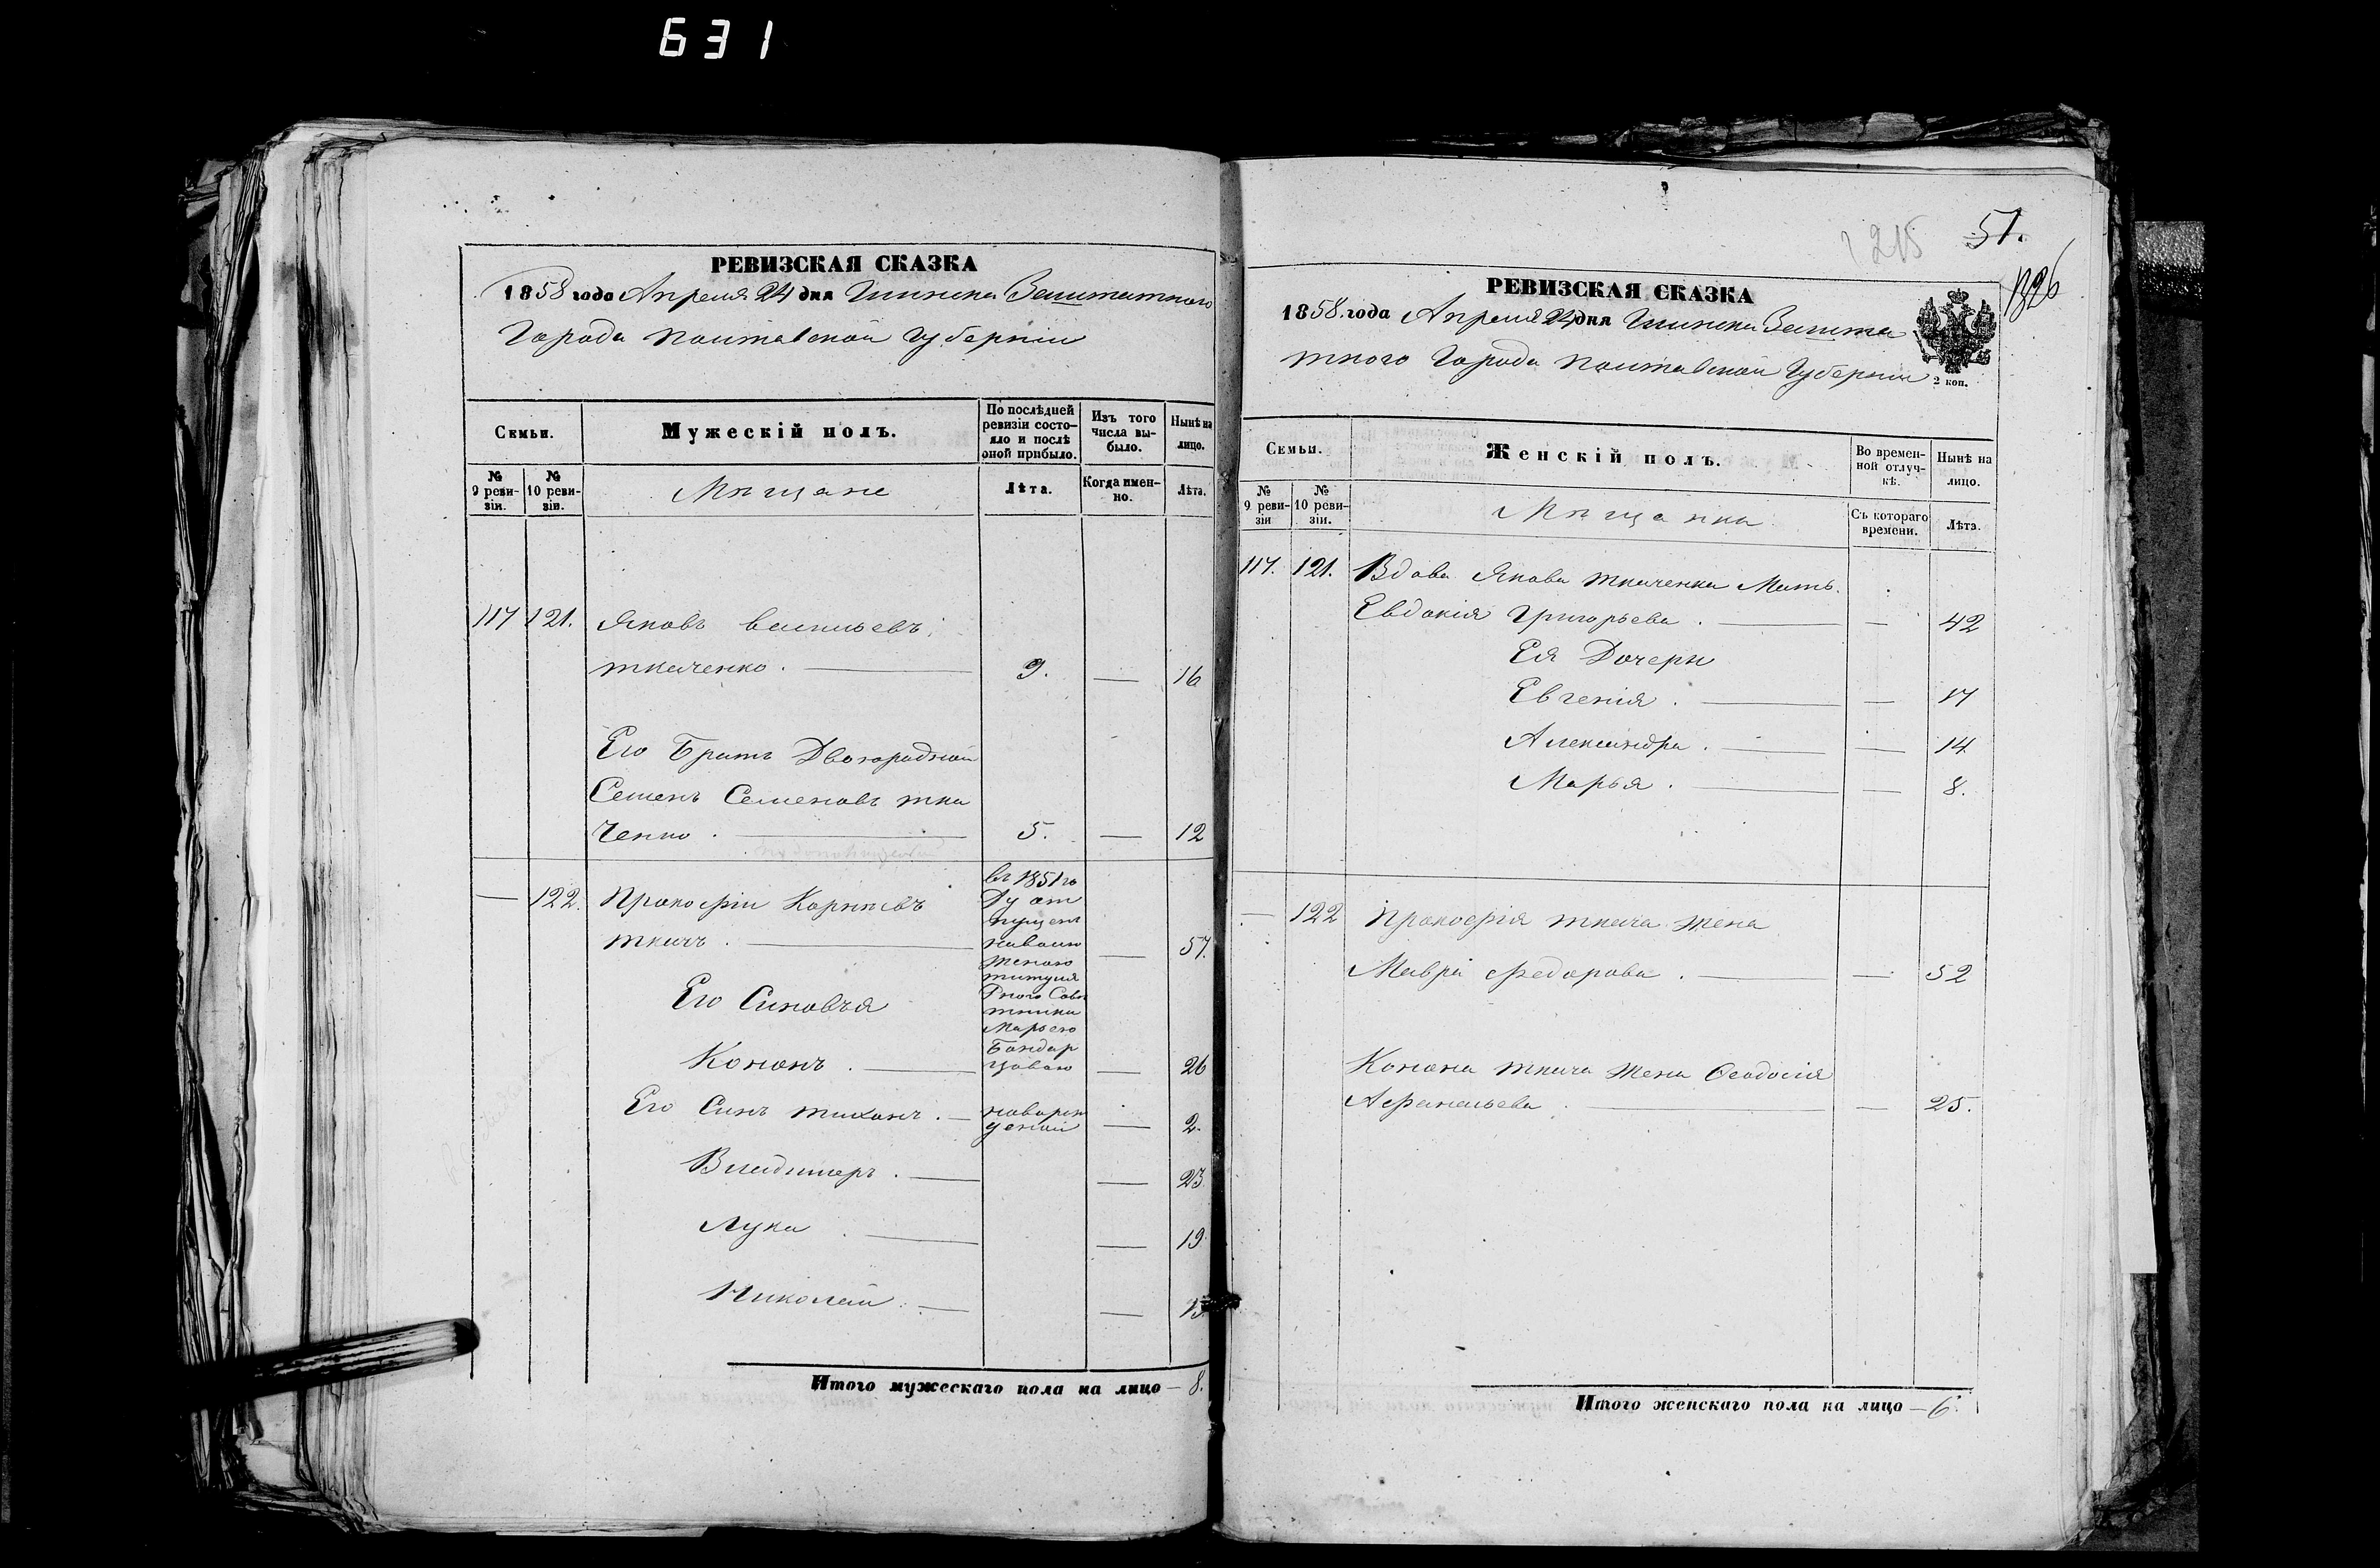 631
РЕВИЗСКАЯ СКАЗКА
1858 года Апреля 24 дня Глинска Заштатного
Города Полтавской Губернии
Семьи.
Мужескій полъ.
По послѣдней ревизіи состояло и послѣ оной прибыло.
Изъ того числа выбыло.
Нынѣ на лицо.
№ 9 ревизіи.
№ 10 ревизіи.
Мѣщане
Лѣта.
Когда именно.
Лѣта.
117 121. Яковъ Васильевъ
Ткаченко. 9. — 16
Его Братъ Двоюродной
Семенъ Семеновъ Тка
ченко. 5. — 12
— 122. Прокофій Корнѣевъ
Ткачъ. — 57.
въ 1851 го
ду от
пущен
на волю
женою
титуля
рного Совѣ
тника
Марьею
Бондар
цовою
Его Синовья
Кононъ. — 26
Его Синъ Тихонъ. — новорож
деной — 2.
Владимеръ. — 23
Лука — 19
Николай. — 13
Итого мужескаго пола на лицо — 8.
1215
51.
РЕВИЗСКАЯ СКАЗКА
1858. года Апреля 24 дня Глинска Зашта
тного Города Полтавской Губернии
2 коп.
Семьи.
Женскій полъ.
Во временной отлучкѣ.
Нынѣ на лицо.
№ 9 ревизіи
№ 10 ревизіи.
Мѣщанки
Съ котораго времени.
Лѣта.
117. 121. Вдова Якова Ткаченка Мать.
Евдокія Григорьева. — 42
Ея Дочери
Евгенія. — 17
Александра. — 14
Марья. — 8.
— 122 Прокофія Ткача жена
Мавра Федорова. — 52
Конона Ткача жена Феодосія
Афанасьева — 25.
Итого женскаго пола на лицо — 6.